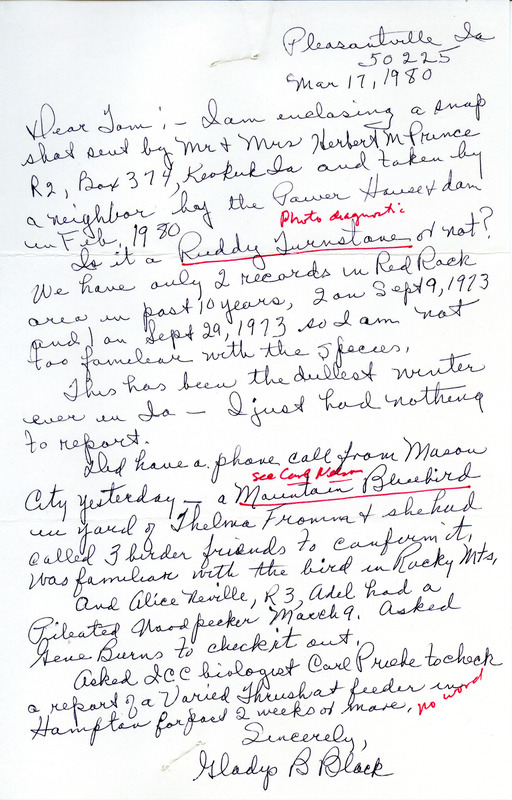 Pleasantville Ia
50225
Mar 17, 1980
Dear Tom; - I am enclosing a snap
shot sent by Mr & Mrs Herbert M Prince
R2, Box 374, Keokuk Ia and taken by
a neighbor by the Power House & dam
in Feb, 1980
Photo diagnostic
Is it a Ruddy Turnstone or not?
We have only 2 records in Red Rock
area in past 10 years, 2 on Sept 9, 1973
and 1 on Sept 29, 1973 so I am not
too familiar with the species.
This has been the dullest winter
ever in Ia - I just had nothing
to report.
Did have a phone call from Mason
see Carol Nelson
City yesterday - a Mountain Bluebird
in yard of Thelma Fromm & she had
called 3 birder friends to confirm it,
Was familiar with the bird in Rocky Mts,
And Alice Neville, R3, Adel had a
Pileated Woodpecker March 9. Asked
Gene Burns to check it out.
Asked ICC biologist Carl Priebe to check
a report of a Varied Thrush at feeder in
Hampton for past 2 weeks or more. no word
Sincerely,
Gladys B Black